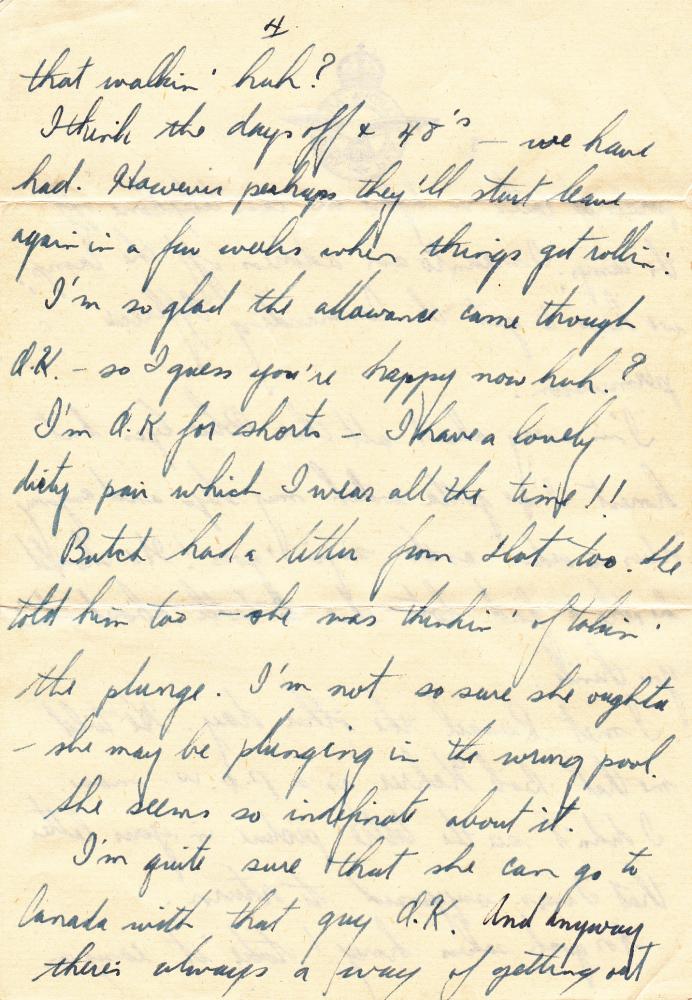 4
that walkin' huh?
I think the days off & 48's – we have
had. However perhaps they'll start leave
again in a few weeks when things get rollin'.
I'm so glad the allowance came through
O.K. – so I guess you're happy now huh?
I'm O.K for shorts – I have a lovely
dirty pair which I wear all the time!!
Butch had a letter from too. She
told him too – she was thinkin' of takin'
the plunge. I'm not so sure she oughta
– she may be plunging in the wrong pool.
She seems so indefinate about it.
I'm quite sure that she can go to
Canada with that guy O.K. And anyway
there's always a way of getting out